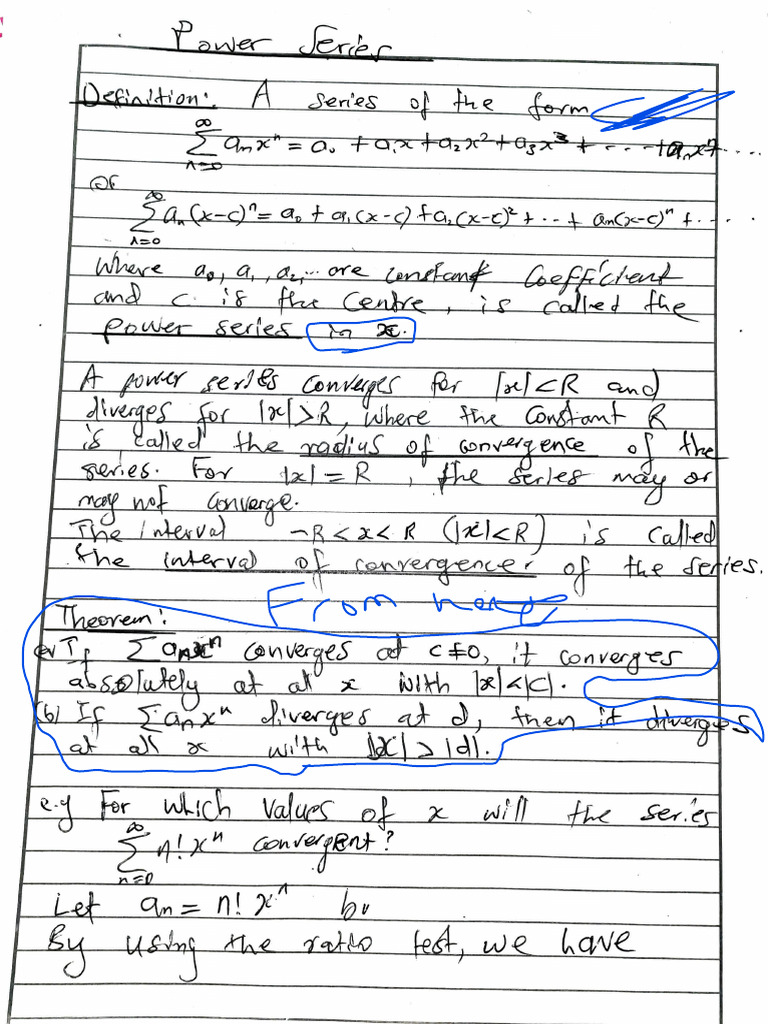 Power Series
Definition: A series of the form
∞
∑ aₙxⁿ = a₀ + a₁x + a₂x² + a₃x³ + ... + aₙxⁿ + ...
n=0
or
∞
∑ aₙ(x-c)ⁿ = a₀ + a₁(x-c) + a₂(x-c)² + ... + aₙ(x-c)ⁿ + ...
n=0
Where a₀, a₁, a₂,... are constant Coefficient
and c is the Centre, is called the
power series in x.
A power series converges for |x|<R and
diverges for |x|>R, where the Constant R
is called the radius of convergence of the
series. For |x| = R, the series may or
may not converge.
The interval -R<x<R (|x|<R) is called
the interval of convergence of the series.
From
Theorem:
(a) If ∑ aₙxⁿ converges at c≠0, it converges
absolutely at at x with |x|<|c|.
(b) If ∑aₙxⁿ diverges at d, then it diverges
at all x with |x|>|d|.
e.g For which values of x will the series
∞
∑ n! xⁿ convergent?
n=0
Let aₙ = n! xⁿ
By using the ratio test, we have